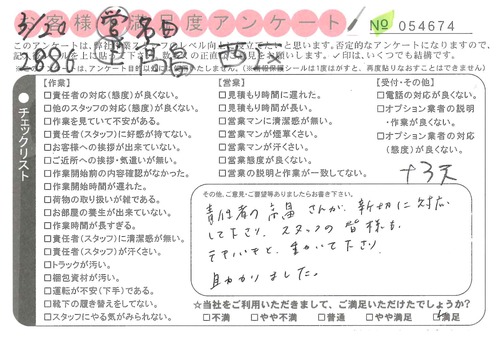 お客様満足度アンケート No 054674
3/20
このアンケートは、弊社
否定的なアンケートになりますので、
✓印は、いくつでも結構です。
チェックリスト
【作業】
□責任者の対応(態度)が良くない。
□他のスタッフの対応(態度)が良くない。
□作業を見ていて不安がある。
□責任者(スタッフ)に好感が持てない。
□お客様への挨拶が出来ていない。
□ご近所への挨拶・気遣いが無い。
□作業開始前の内容確認がなかった。
□作業開始時間が遅れた。
□荷物の取り扱いが雑である。
□お部屋の養生が出来ていない。
□作業時間が長すぎる。
□責任者(スタッフ)に清潔感が無い。
□責任者(スタッフ)が汗くさい。
□トラックが汚い。
□梱包資材が汚い。
□運転が不安(下手)である。
□靴下の履き替えをしてない。
□スタッフにやる気がみられない。
【営業】
□見積もり時間に遅れた。
□見積もり時間が長い。
□営業マンに清潔感が無い。
□営業マンが煙草くさい。
□営業マンが汗くさい。
□営業態度が良くない。
□営業の説明と作業が一致してない。
【受付・その他】
□電話の対応が良くない。
□オプション業者の説明
・作業が良くない。
□オプション業者の対応
(態度)が良くない。
+3天
その他、ご意見・ご要望等ありましたらお書き下さい。
責任者の さんが、親切に対応
して下さり、スタッフの皆様も
テキパキと、動いて下さり、
助かりました。
☆当社をご利用いただきまして、ご満足いただけたでしょうか?
□不満 □やや不満 □普通 □やや満足 □満足